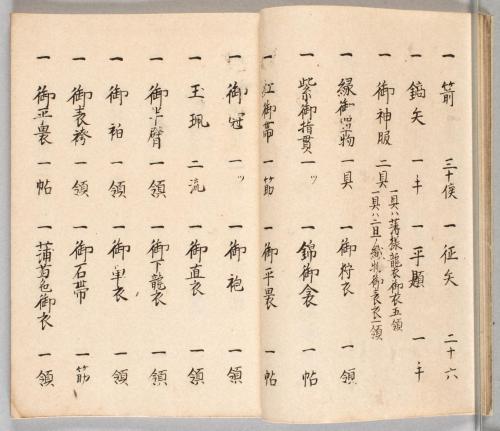 一 箭 三十隻 一 征矢 二十六
一 鏑矢 一手 一 平題 一手
一 御神服 二具
一 緑御 物 一具 一 御狩衣 一領
一 紫御指貫 一ツ 一 錦御衾 一帖
一 紅御帯 一筋 一 御平裹 一帖
一 御冠 一ツ 一 御袍 一領
一 玉珮 二流 一 御直衣 一領
一 御半臂 一領 一 御下襲衣 一領
一 御袙 一領 一 御単衣 一領
一 御表袴 一領 一 御石帯 一筋
一 御平裹 一帖 一 蒲萄色御衣 一領